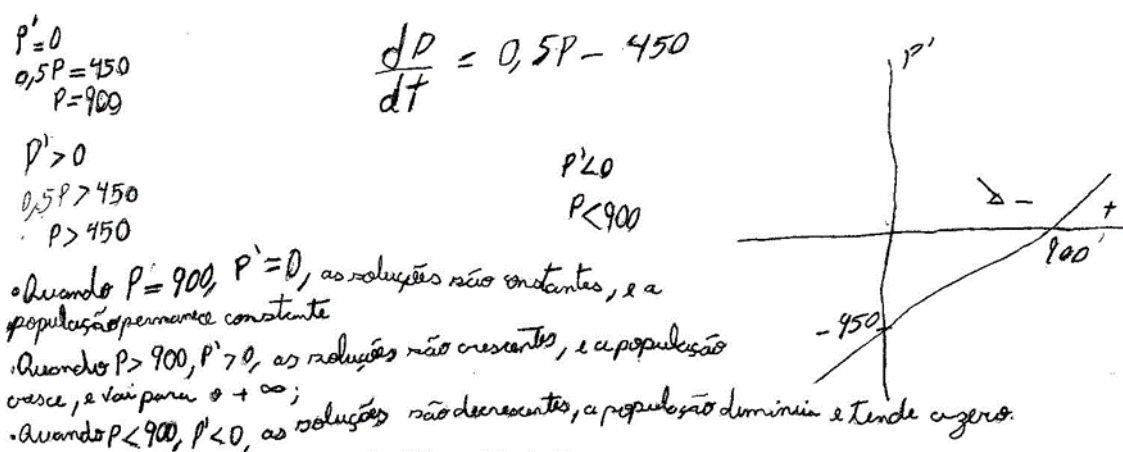 P'=0
0,5P=450
P=900
dP/dt = 0,5P - 450
P'>0
0,5P>450
P>450
P'<0
P<900
P'
-
+
900
-450
•Quando P=900, P'=0, as soluções são constantes, e a
população permanece constante
•Quando P>900, P'>0, as soluções são crescentes, e a população
cresce, e vai para o +∞;
•Quando P<900, P'<0, as soluções são decrescentes, a população diminui e tende a zero.